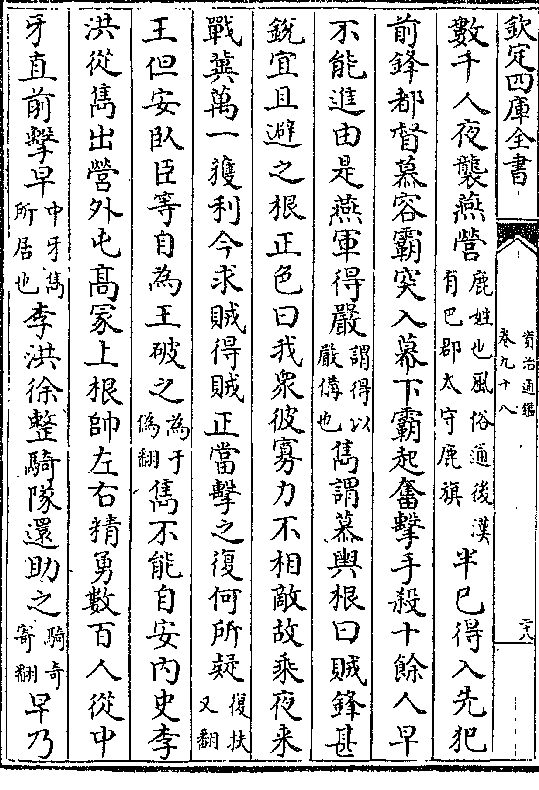 欽定四庫全書
資治通鑑
卷九十八
二十八
數千人夜襲燕營鹿姓也風俗通後漢有巴郡太守鹿旗半已得入先犯
前鋒都督慕容霸突入幕下霸起奮擊手殺十餘人早
不能進由是燕軍得嚴謂得以嚴備也雋謂慕輿根曰賊鋒甚
銳宜且避之根正色曰我衆彼寡力不相敵故乘夜來
戰冀萬一獲利今求賊得賊正當擊之復何所疑復扶又翻
王但安臥臣等自為王破之為于偽翻雋不能自安內史李
洪從雋出營外屯高冢上根帥左右精勇數百人從中
牙直前擊早中牙雋所居也李洪徐整騎隊還助之騎奇寄翻早乃